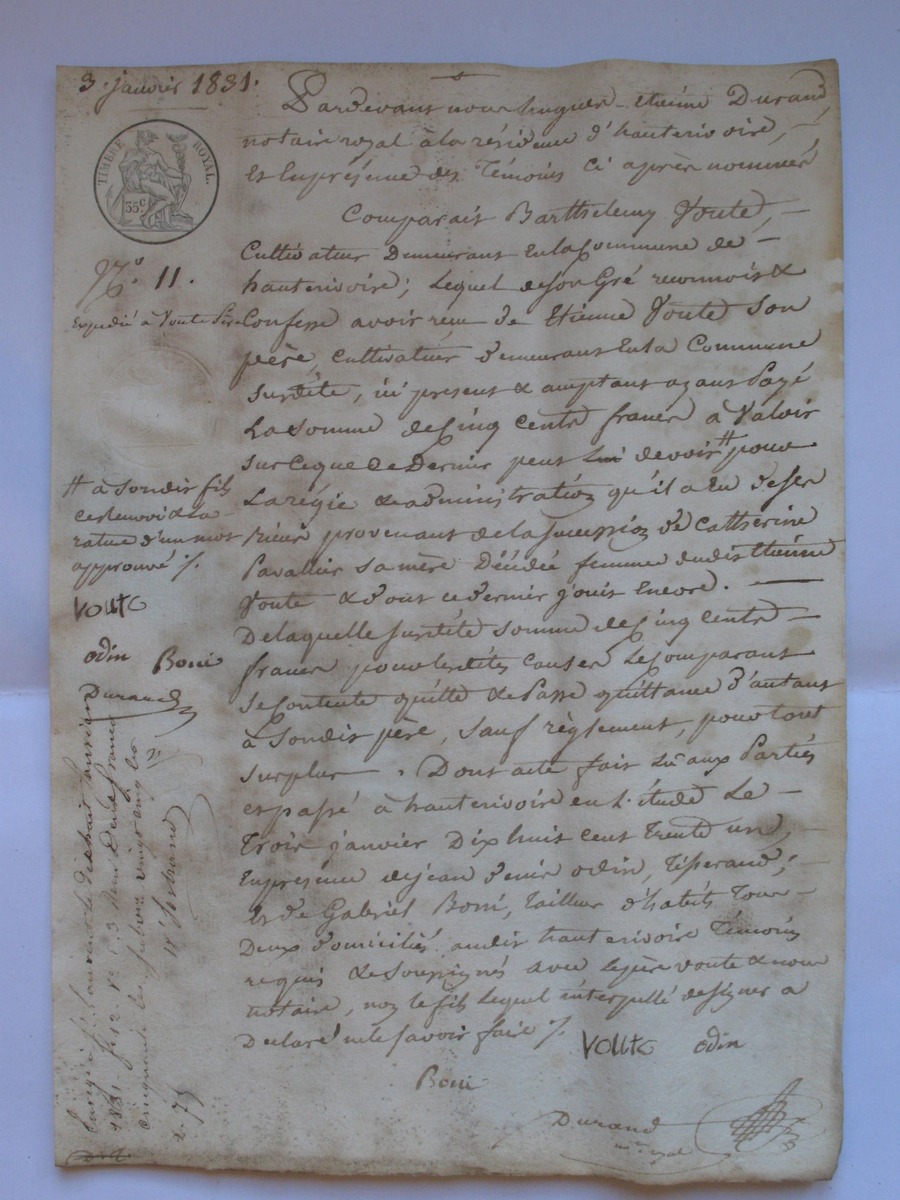 3. janvier 1831.
TIMBRE ROYAL.
35c
N.o 11.
Expédié à Voute Père
Pardevant nous hugues-etienne Durand,
notaire royal à la résidence d'hauterivoire, –
et En présence des Témoins Ci après nommés
Comparait Barthelemy Voute, –
Cultivateur Demeurant En la Commune de –
hauterivoire; lequel de son Gré reconnoit &
Confesse avoir reçu de Etienne Voute Son
père, cultivateur demeurant En la Commune
Surdite, ici présent & acceptant ayant Payé
La somme de Cinq Cents francs à Valoir
Sur Ce que Ce Dernier peut lui devoir # pour
La régie & administration qu'il a Eu de ses
Biens provenant de la succession de Catherine
Pavallier sa mère Décédée femme dudit Etienne
Voute & dont ce dernier jouit Encore. —
De laquelle surdite somme de Cinq Cents –
francs pour lesdites Causes Le Comparant
Se Contente quitte & Passe quittance d'autant
à Son dit père, Sauf règlement, pour tout
Surplus. Dont acte fait Lu aux Parties
et passé à hauterivoire en l'étude Le –
Trois janvier Dix huit cent Trente un, –
En présence de jean denis odin, Tisserand; –
et de Gabriel Boni, tailleur d'habits Tous –
Deux domiciliés audit hauterivoire Témoins
requis & Soussignés avec le père voute & nous
notaire, non le fils Lequel interpellé de signer a
Déclaré ne le savoir faire /.
voute odin
Boni
Durand
n.re royal
# à Son dit fils
Ce Renvoi & La
rature d'un mot
approuvé /.
voute
odin Boni
Durand
1831. f.o 12. v.o C. 3
2-75